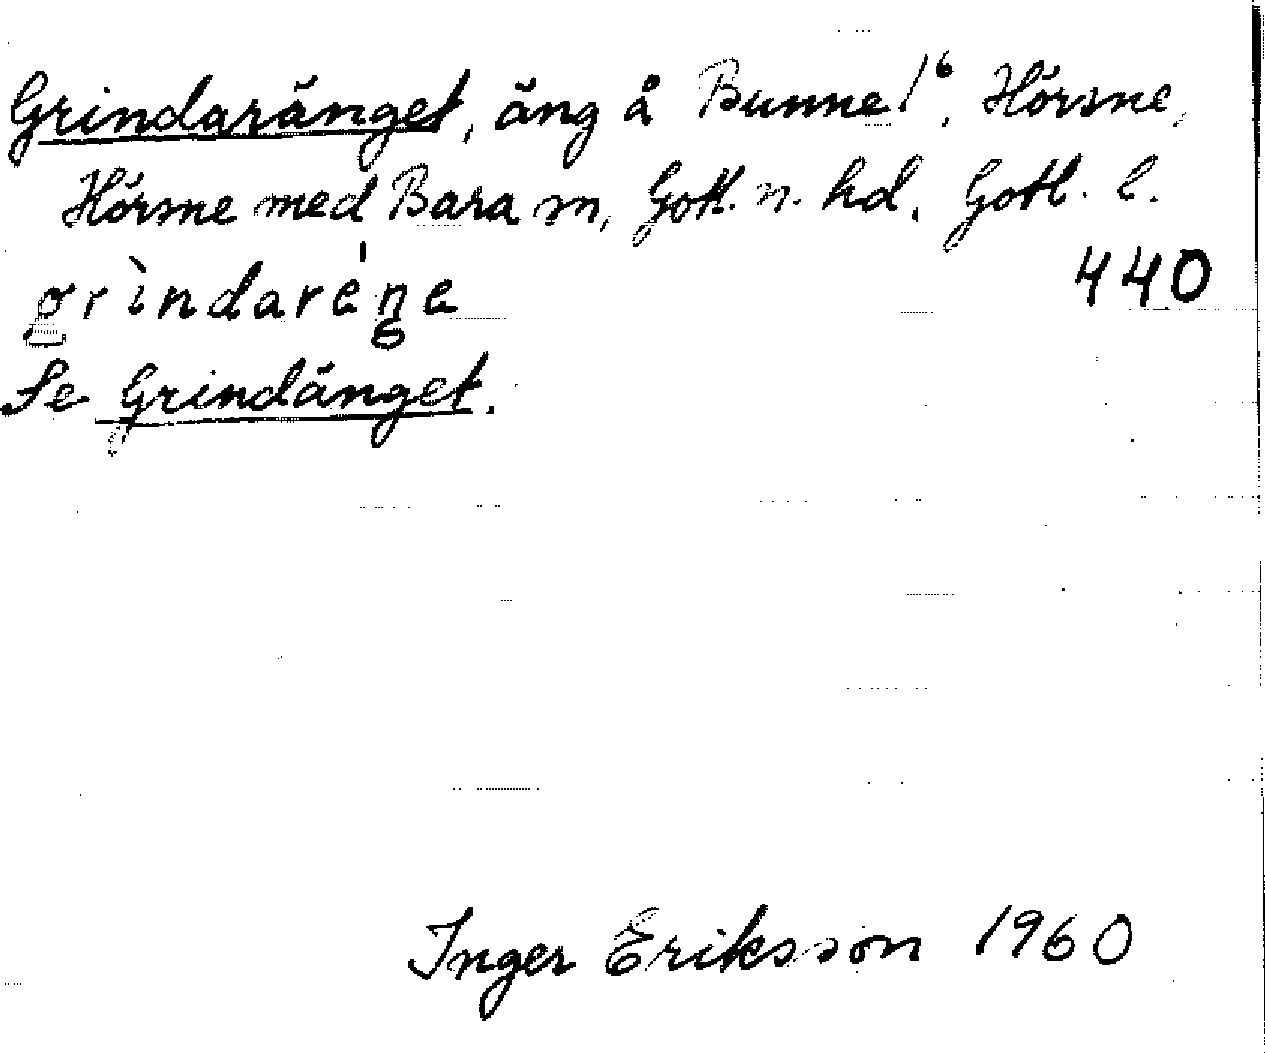 Grindaränget, äng å Bunne 1⁶, Hörsne,
Hörsne med Bara sn, Gotl. n. hd. Gotl. l.
grìndaréŋe
440
Se Grindänget.
Inger Eriksson 1960